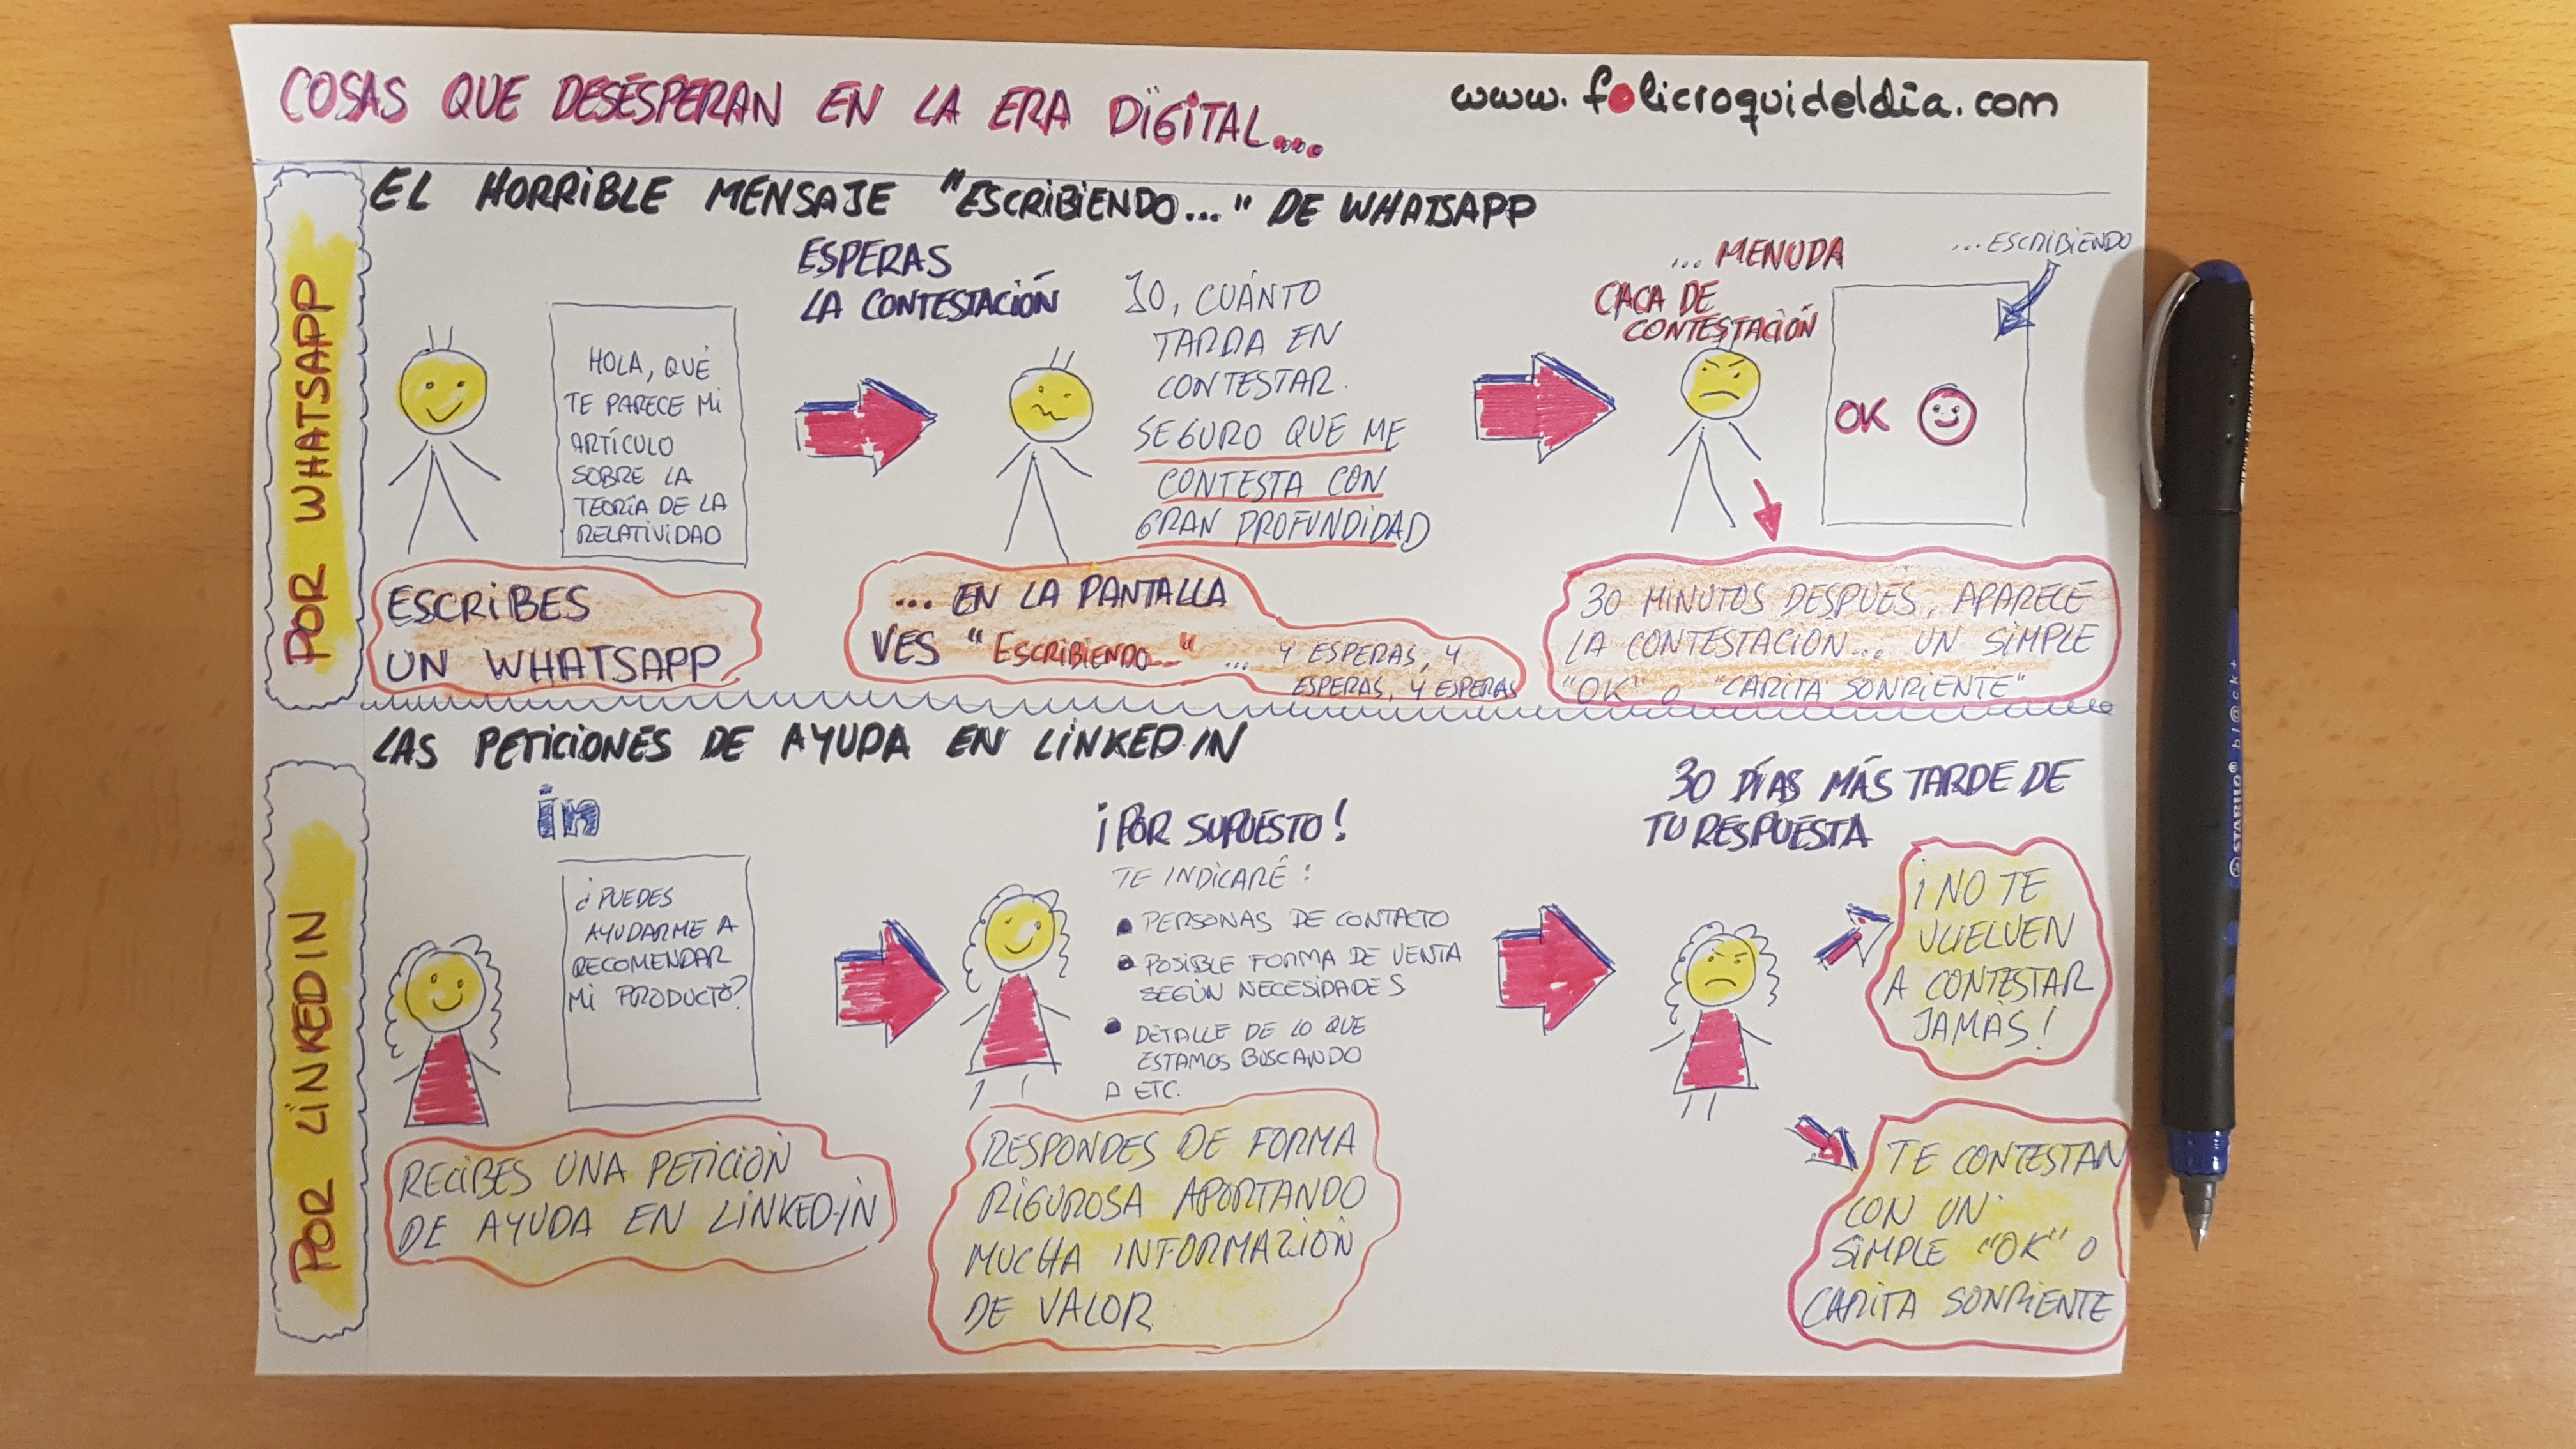 COSAS QUE DESESPERAN EN LA ERA DIGITAL...
www.folicroquideldia.com
POR WHATSAPP
EL HORRIBLE MENSAJE "ESCRIBIENDO..." DE WHATSAPP
HOLA, QUÉ
TE PARECE MI
ARTÍCULO
SOBRE LA
TEORÍA DE LA
RELATIVIDAD
ESCRIBES
UN WHATSAPP
ESPERAS
LA CONTESTACIÓN
JO, CUÁNTO
TARDA EN
CONTESTAR.
SEGURO QUE ME
CONTESTA CON
GRAN PROFUNDIDAD
... EN LA PANTALLA
VES "ESCRIBIENDO..." ... Y ESPERAS, Y
ESPERAS, Y ESPERAS
... MENUDA
CACA DE
CONTESTACIÓN
...ESCRIBIENDO
OK
30 MINUTOS DESPUÉS, APARECE
LA CONTESTACIÓN... UN SIMPLE
"OK" O "CARITA SONRIENTE"
POR LINKEDIN
LAS PETICIONES DE AYUDA EN LINKEDIN
in
¿PUEDES
AYUDARME A
RECOMENDAR
MI PRODUCTO?
RECIBES UNA PETICIÓN
DE AYUDA EN LINKEDIN
¡POR SUPUESTO!
TE INDICARÉ:
• PERSONAS DE CONTACTO
• POSIBLE FORMA DE VENTA
SEGÚN NECESIDADES
• DETALLE DE LO QUE
ESTAMOS BUSCANDO
ETC.
RESPONDES DE FORMA
RIGUROSA APORTANDO
MUCHA INFORMAZIÓN
DE VALOR
30 DÍAS MÁS TARDE DE
TU RESPUESTA
¡NO TE
VUELVEN
A CONTESTAR
JAMÁS!
TE CONTESTAN
CON UN
SIMPLE "OK" O
CARITA SONRIENTE
STABILO® bl@ck+